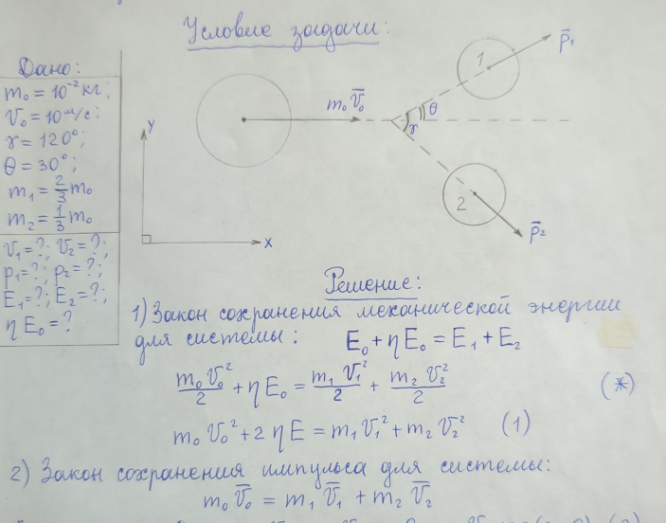 Условие задачи:
Дано:
m₀ = 10⁻² кг;
V₀ = 10 м/с;
γ = 120°;
θ = 30°;
m₁ = 2/3 m₀
m₂ = 1/3 m₀
V₁ = ?; V₂ = ?;
p₁ = ?; p₂ = ?;
E₁ = ?; E₂ = ?;
η E₀ = ?
Y
X
m₀ V̅₀
1
p̅₁
θ
γ
2
p̅₂
Решение:
1) Закон сохранения механической энергии
для системы: E₀ + ηE₀ = E₁ + E₂
m₀V₀²/2 + ηE₀ = m₁V₁²/2 + m₂V₂²/2 (*)
m₀V₀² + 2ηE = m₁V₁² + m₂V₂² (1)
2) Закон сохранения импульса для системы:
m₀V̅₀ = m₁V̅₁ + m₂V̅₂